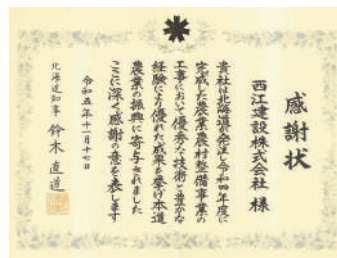 感謝状
西江建設株式会社 様
貴社は北海道が発注し令和四年度に
完成した農業農村整備事業の
工事において優秀な技術と豊かな
経験により優れた成果を挙げ本道
農業の振興に寄与されました
ここに深く感謝の意を表します
令和五年十一月十七日
北海道知事 鈴木直道